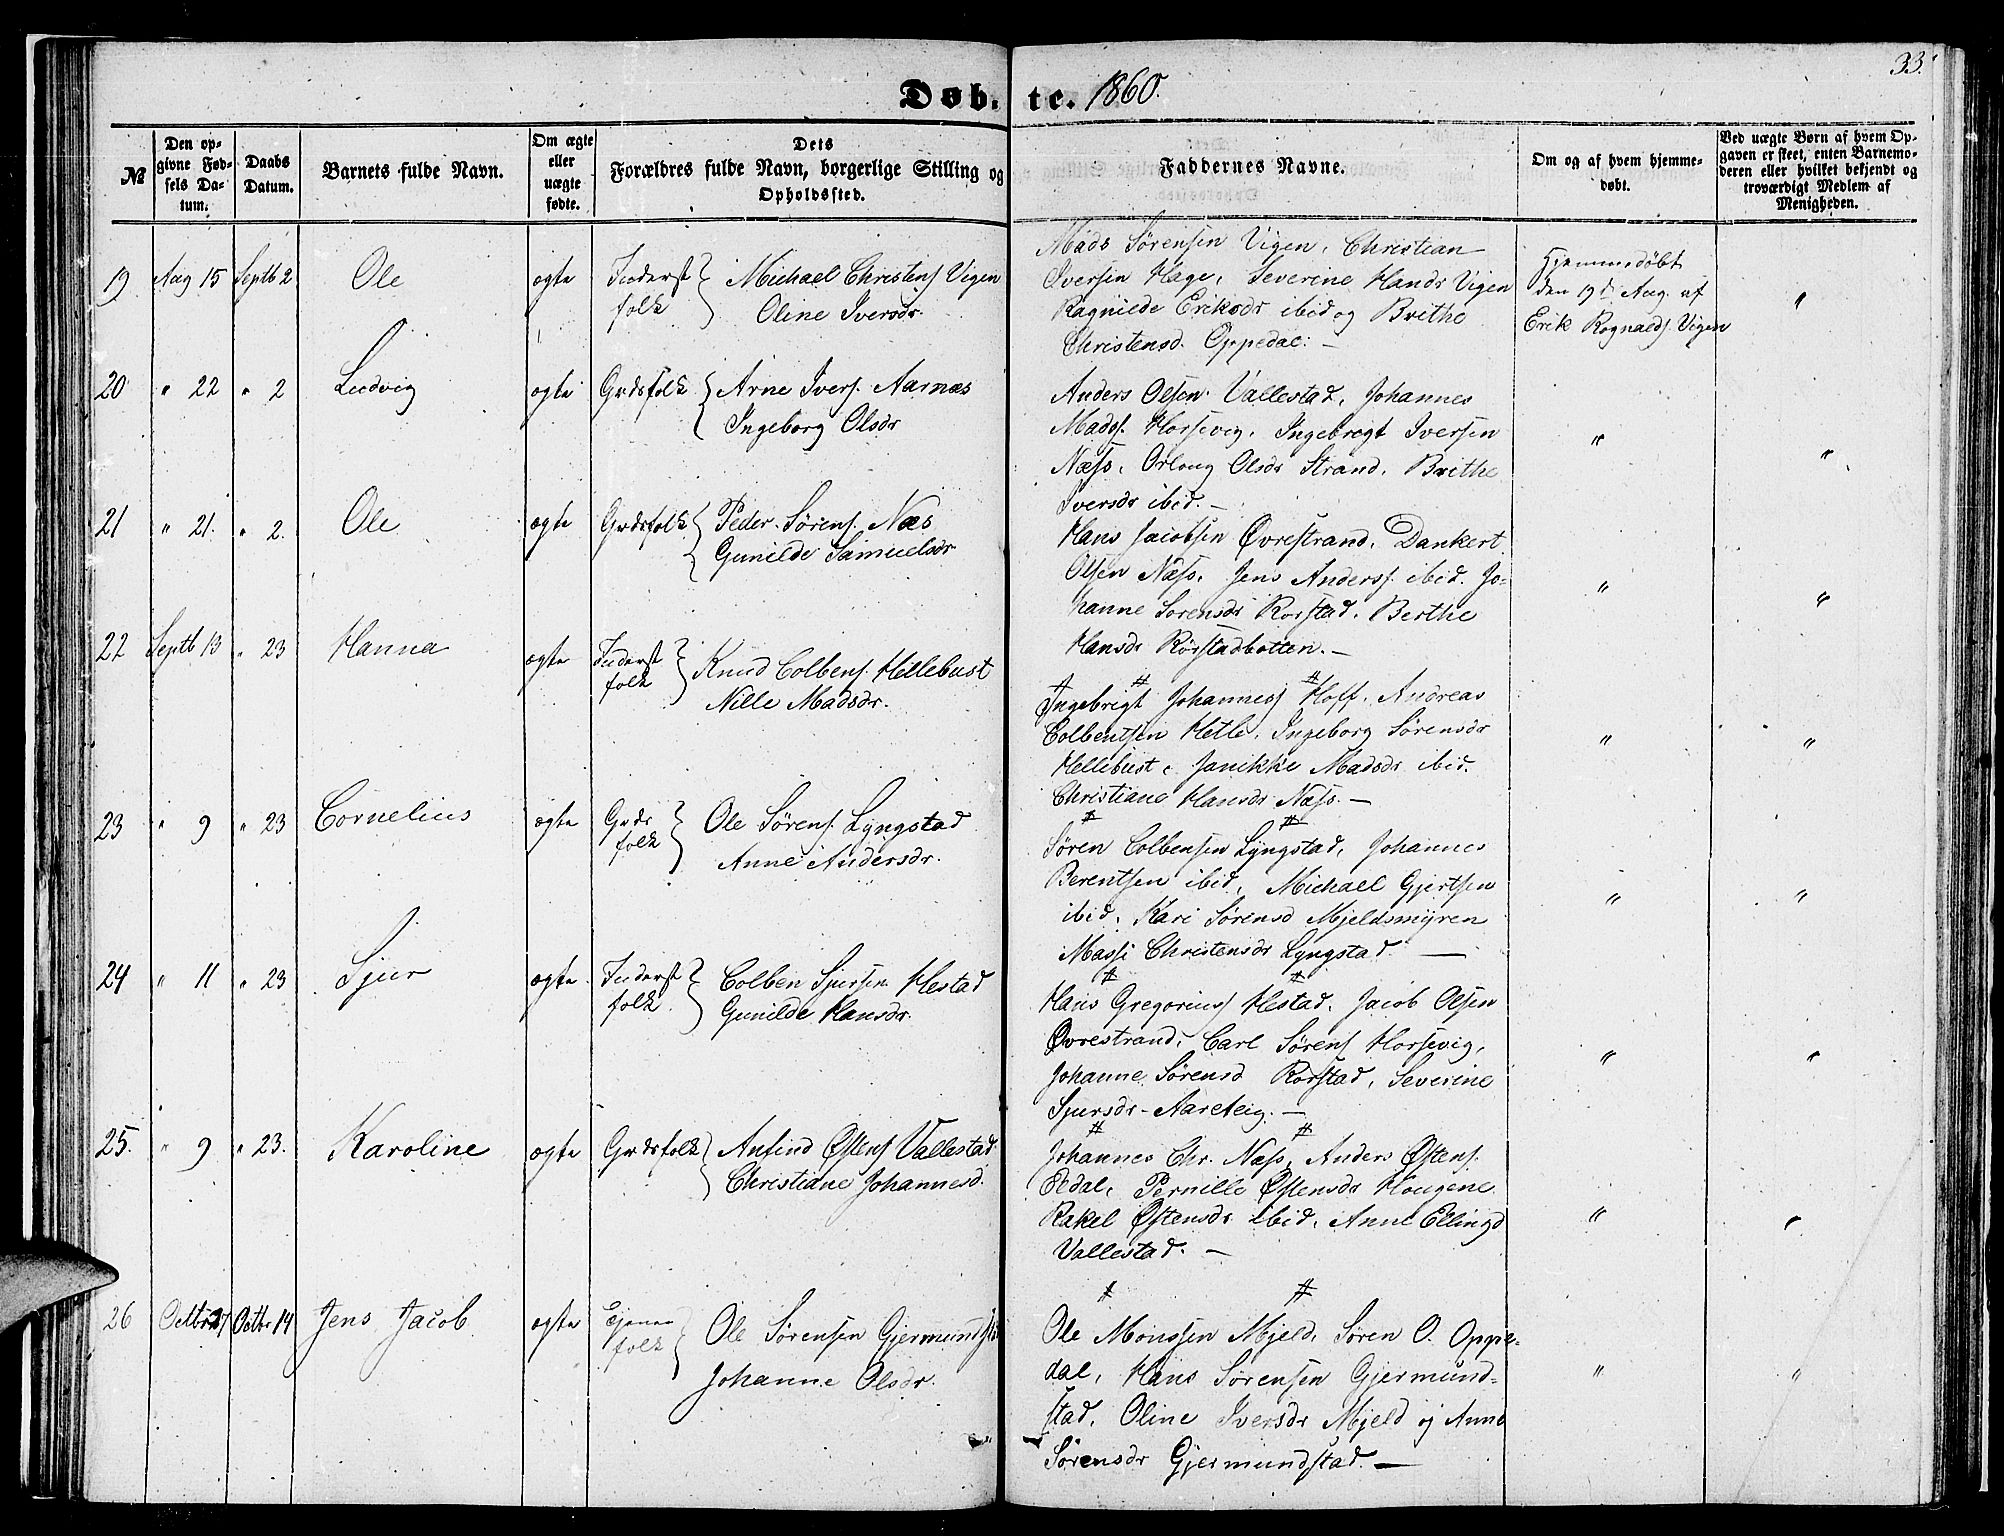 33.
Døbte. 1860.
№
Den opgivne Fødsels Datum.
Daabs Datum.
Barnets fulde Navn.
Om ægte eller uægte fødte.
Dets Forældres fulde Navn, borgerlige Stilling og Opholdssted.
Faddernes Navne.
Om og af hvem hjemmedøbt.
Ved uægte Børn af hvem Opgaven er skeet, enten Barnemoderen eller hvilket bekjendt og troværdigt Medlem af Menigheden.
19 Aug 15 Septb 2 Ole ægte Inderst folk { Michael Christens. Vigen
Oline Iversdr.
Mads Sørensen Vigen, Christian
Iversen Hage, Severine Hansdr Vigen
Ragnilde Eriksdr ibid og Brithe
Christensd. Oppedal: —
Hjemmedøbt
den 19de Aug. af
Erik Rognalds. Vigen
"
20 " 22 " 2 Ludvig ægte Grdsfolk { Arne Ivers. Aarnæs
Ingeborg Olsdr
Anders Olsen Vallestad, Johannes
Madss. Horsevig, Ingebregt Iversen
Næss, Orloug Olsdr Strand, Brithe
Iversdr ibid. —
" "
21 " 21. " 2. Ole ægte Grdsfolk { Peder Sørens. Næs
Gunilde Samuelsdr
Hans Jacobsen Øvrestrand, Dankert
Olsen Næss, Jens Anders. ibid. Jo-
hanne Sorensdr Rorstad, Berthe
Hansdr Rørstadbotten. —
" "
22 Septb 13 " 23 Hanna ægte Inderst folk } Knud Colbens. Hellebust
Nille Madsdr.
Ingebrigt Johanness. Hoff, Andreas
Colbentsen Hetle, Ingeborg Sørensdr
Hellebust, Janikke Madsdr ibid.
Christiane Hansdr Næss. —
" "
23 " 9 " 23 Cornelius ægte Grds folk } Ole Sørens. Lyngstad
Anne Andersdr.
Søren Colbensen Lyngstad, Johannes
Berentsen ibid, Michael Gjertsen
ibid, Kari Sørensd Mjeldsmyren
Massi Christensdr Lyngstad. —
" "
24 " 11 " 23 Sjur ægte Inderst folk. } Colben Sjursen Hestad
Gunilde Hansdr.
Hans Gregoriuss. Hestad, Jacob Olsen
Øvrestrand, Carl Sørens. Horsevig,
Johanne Sørensd Rorstad, Severine
Sjursdr Aareteig. —
" "
25. " 9 " 23. Karoline ægte Grdsfolk } Anfind Østens. Vallestad
Christiane Johannesd.
Johannes Chr. Næss, Anders Østens.
Eldal, Pernille Østensdr Hougene
Rakel Østensdr ibid, Anne Ellingd
Vallestad. —
" "
26 Octbr Octbr 14 Jens Jacob ægte folk } Ole Sørensen
Johanne Olsdr.
Ole Monssen Mjeld, Søren O. Oppe-
dal, Hans Sørensen Gjermund-
stad, Oline Iversdr Mjeld og Anne
Sørensdr Gjermundstad. —
" "